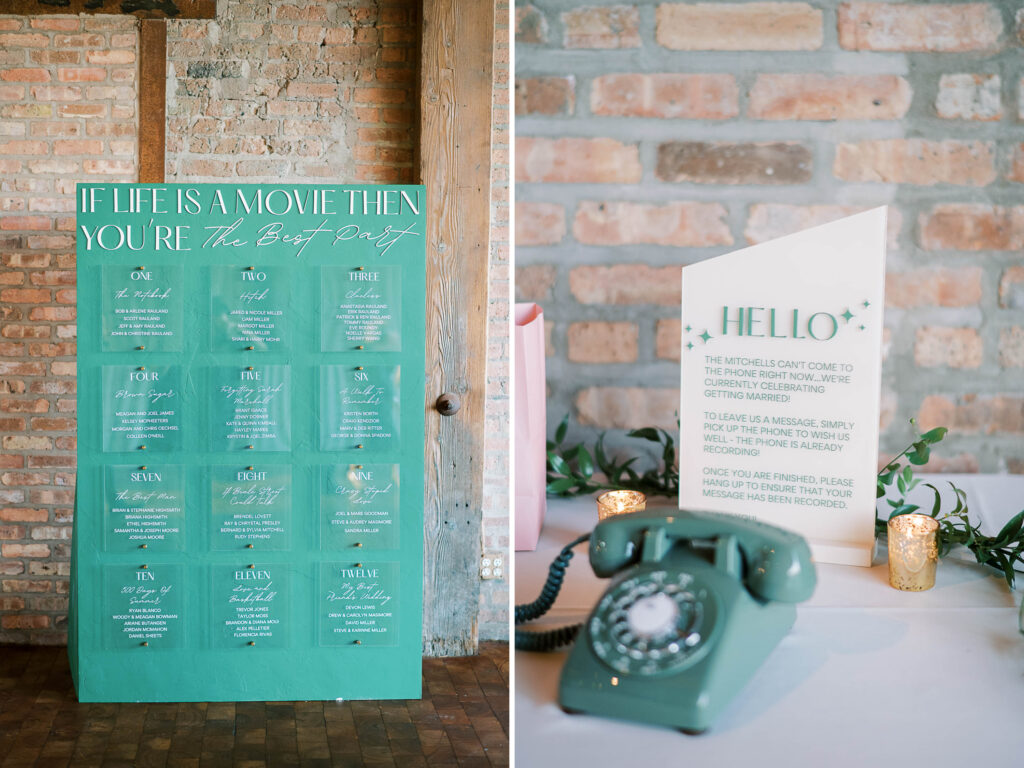 IF LIFE IS A MOVIE THEN
YOU'RE The Best Part
ONE
The Notebook
BOB & ARLENE RAULAND
SCOTT RAULAND
JEFF & AMY RAULAND
JOHN & CHRISTINE RAULAND
TWO
Hitch
JARED & NICOLE MILLER
CAM MILLER
MARGOT MILLER
NINA MILLER
SHARI & HARRY MOHR
THREE
Clueless
ANASTASIA RAULAND
ERIK RAULAND
PATRICK & REN RAULAND
TOMMY RAULAND
EVE ROUNDY
NOELLE VARGAS
SHERRY WANG
FOUR
Brown Sugar
MEAGAN AND JOEL JAMES
KELSEY MCPHEETERS
MORGAN AND CHRIS OECHSEL
COLLEEN O'NEILL
FIVE
Forgetting Sarah
Marshall
GRANT ISAACS
JENNY DOSKEY
KATE & QUINN KIMBALL
HAYLEY MARKS
KRYSTIN & JOEL ZIEMBA
SIX
A Walk To
Remember
KRISTEN BORTH
CRAIG KENDZIOR
MARV & DEB RITTER
GEORGE & DONNA SPADONI
SEVEN
The Best Man
BRIAN & STEPHANIE HIGHSMITH
BRIANA HIGHSMITH
ETHEL HIGHSMITH
SAMANTHA & JOSEPH MOORE
JOSHUA MOORE
EIGHT
If Beale Street
Could Talk
BRENDEL LOVETT
RAY & CHRYSTAL PRESLEY
BERNARD & SYLVIA MITCHELL
RUDY STEPHENS
NINE
Crazy Stupid
Love
JOEL & MARE GOODMAN
STEVE & AUDREY MASMORE
SANDRA MILLER
TEN
500 Days Of
Summer
RYAN BLANCO
WOODY & MEAGAN BOWMAN
ARIANE BUTANGEN
JORDAN MCMAHON
DANIEL SHEETS
ELEVEN
Love and
Basketball
TREVOR JONES
TAYLOR MOSS
BRANDON & DIANA MOIO
ALEX PELLETIER
FLORENCIA RIVAS
TWELVE
My Best
Friend's Wedding
DEVON LEWIS
DREW & CAROLYN MASIMORE
DAVID MILLER
STEVE & KARINNE MILLER
HELLO
THE MITCHELLS CAN'T COME TO
THE PHONE RIGHT NOW...WE'RE
CURRENTLY CELEBRATING
GETTING MARRIED!
TO LEAVE US A MESSAGE, SIMPLY
PICK UP THE PHONE TO WISH US
WELL - THE PHONE IS ALREADY
RECORDING!
ONCE YOU ARE FINISHED, PLEASE
HANG UP TO ENSURE THAT YOUR
MESSAGE HAS BEEN RECORDED.